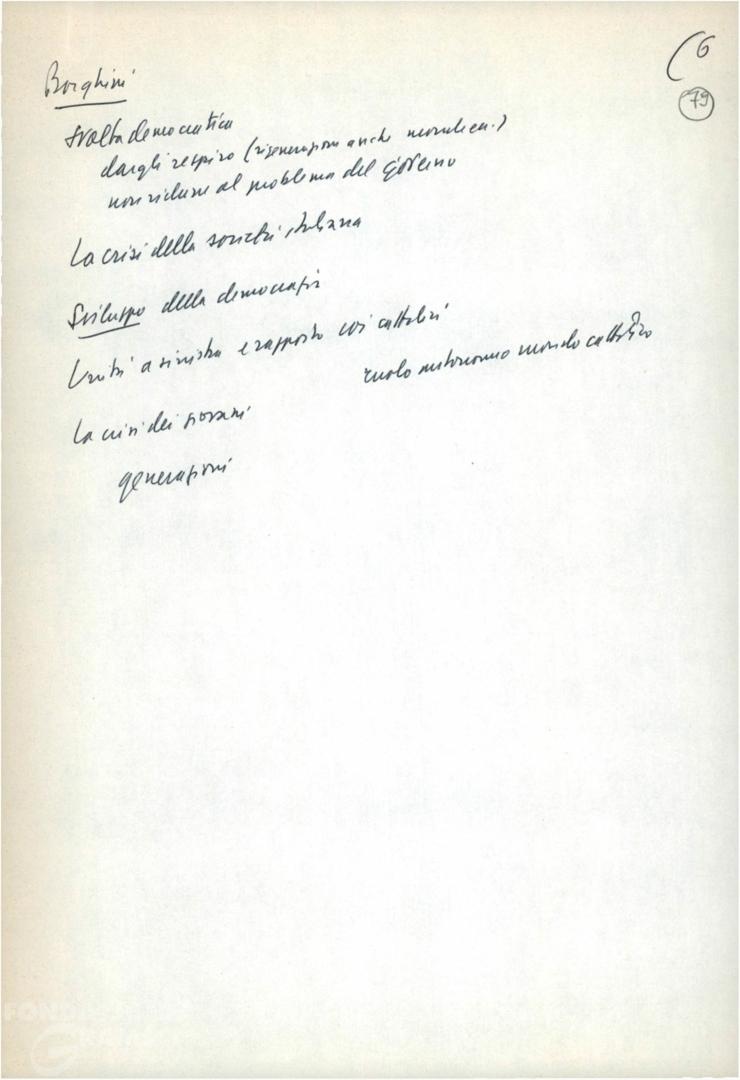 (6
79
Borghini
svolta democratica
dargli respiro (rigenerazione anche
non ridurre al problema del governo
La crisi della società italiana
Sviluppo della democrazia
Unità a sinistra e rapporto coi cattolici
ruolo autonomo mondo cattolico
La crisi dei giovani
generazioni
FONDAZIONE
GRAMSCI